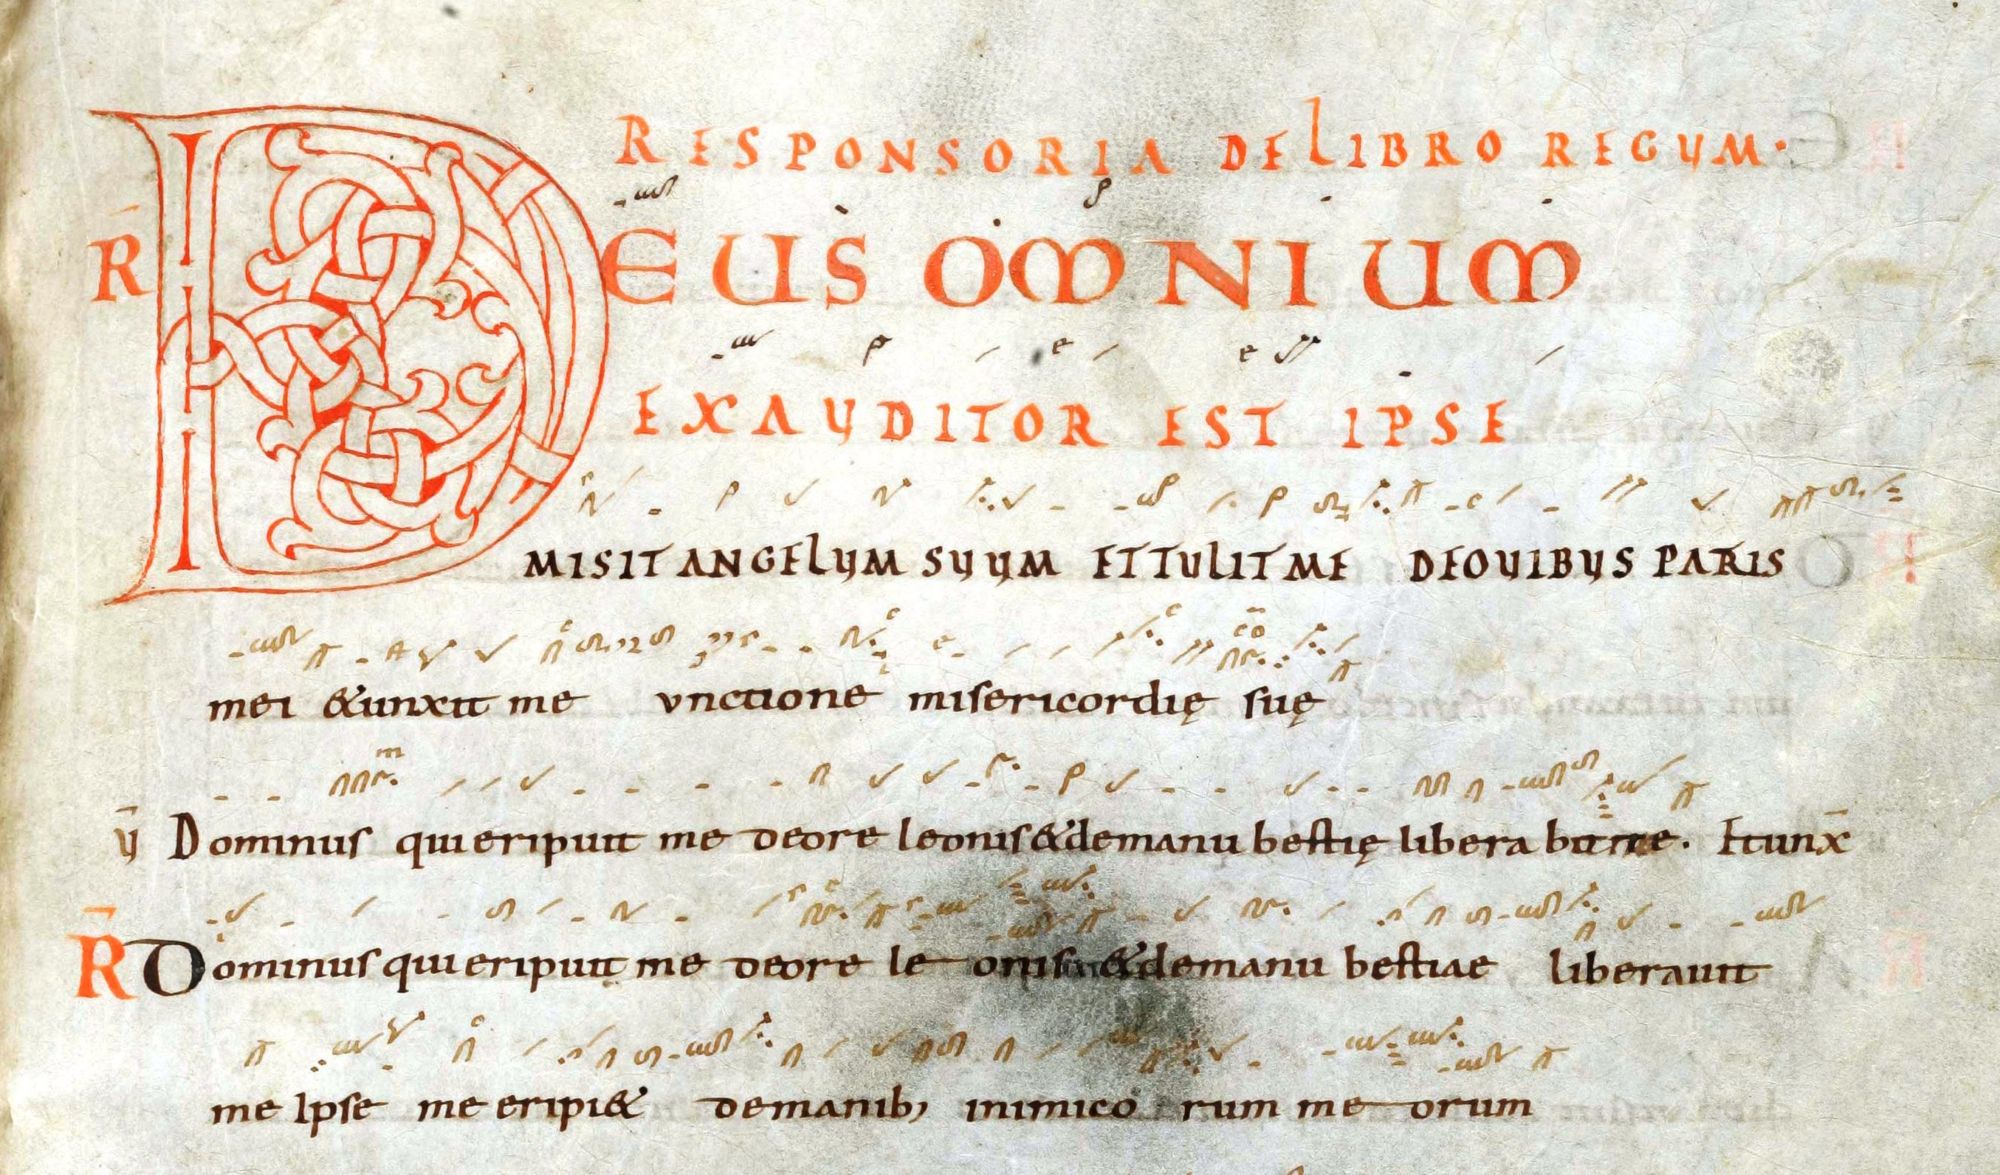 RESPONSORIA DE LIBRO REGUM·
R̄ DEUS OMNIUM
EXAUDITOR EST IPSE
MISIT ANGELUM SUUM ET TULIT ME DE OVIBUS PATRIS
mei &unxit me unctione misericordię suę
V̄ Dominus qui eripuit me deore leonis &demanu bestię libera bit me. Et unx̄
R̄ Dominus qui eripuit me deore le onis &demanu bestiae liberauit
me Ipse me eripi& demanib; inimico rum me orum